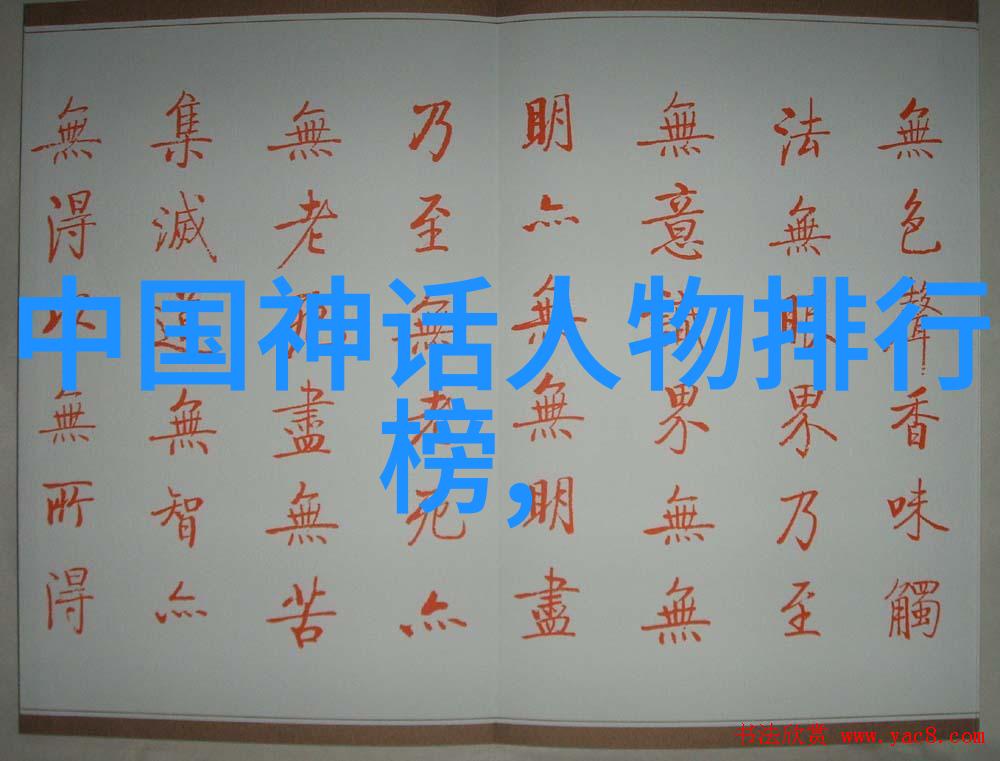 無色聲香味觸
法無眼界乃至
無意識界無無
明亦無無明盡
乃至無老死亦
無老死盡無苦
集滅道無智亦
無得以無所得
中国神话人物排行
榜,
书法欣赏 www.yac8.com